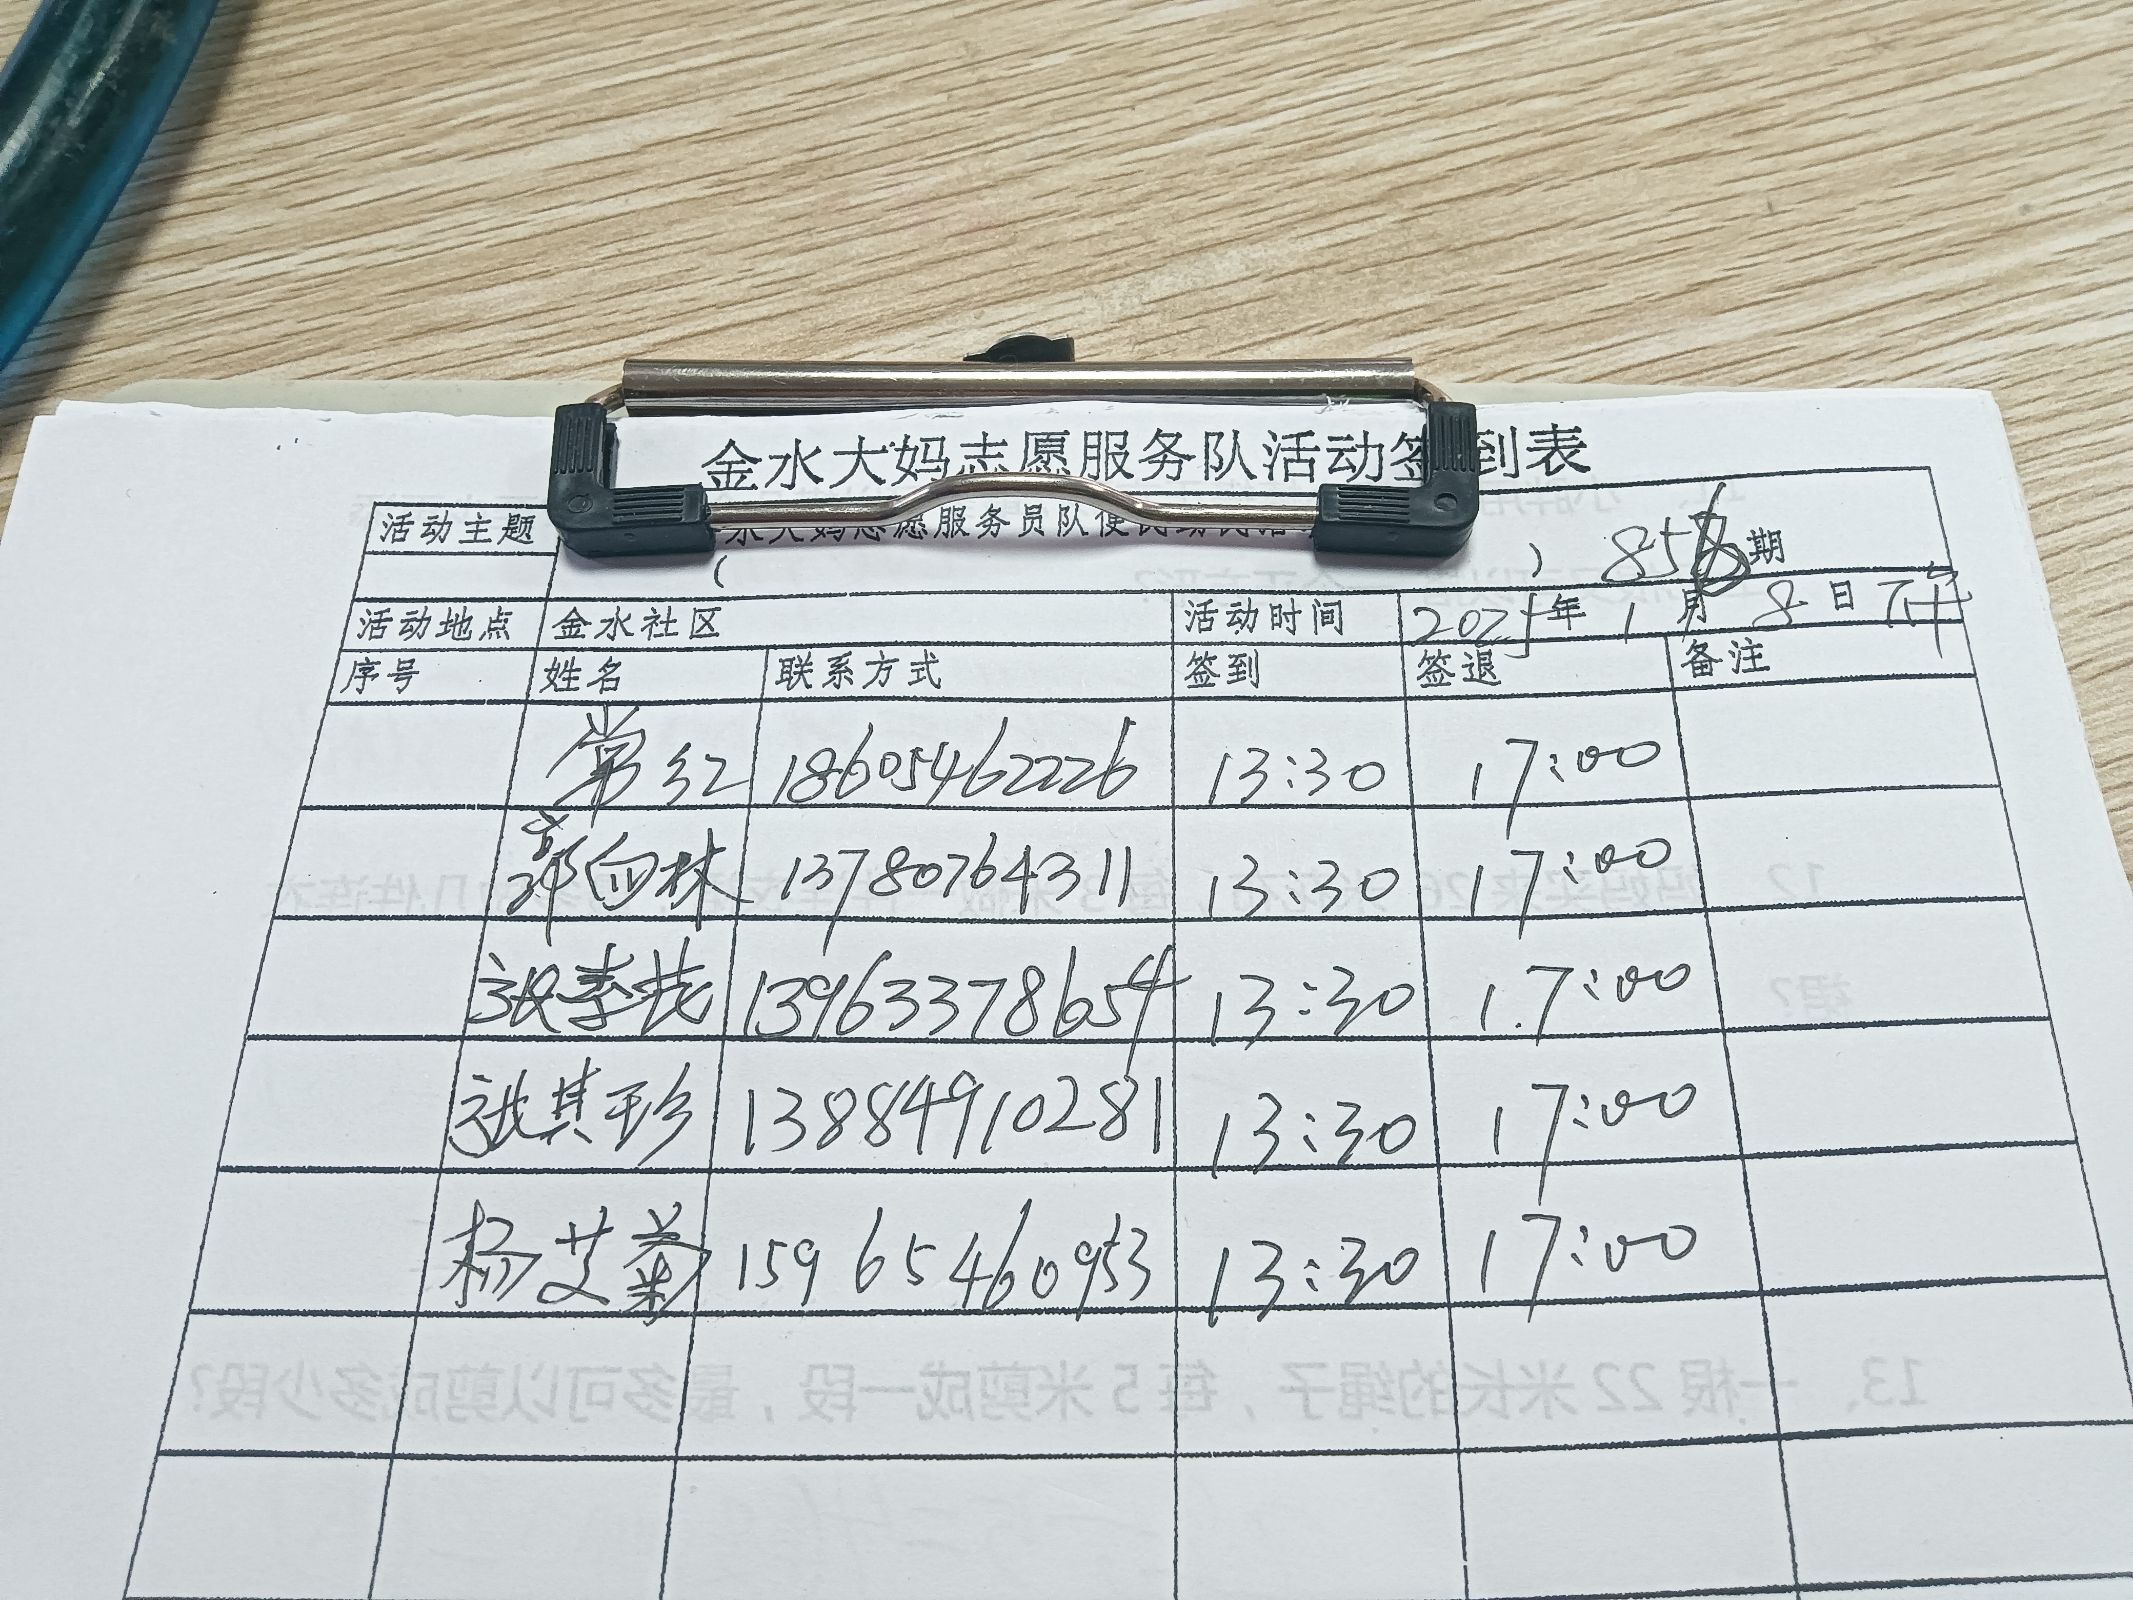 金水大妈志愿服务队活动签到表
活动主题 水大妈志愿服务员队便民
( ) 858期
活动地点 金水社区 活动时间 2025年1月8日下午
序号 姓名 联系方式 签到 签退 备注
常红 18605462226 13:30 17:00
郭向林 13780764311 13:30 17:00
张李花 13963378654 13:30 17:00
张其珍 13884910281 13:30 17:00
杨艾菊 15965460953 13:30 17:00
13、一根22米长的绳子，每5米剪成一段，最多可以剪成多少段？